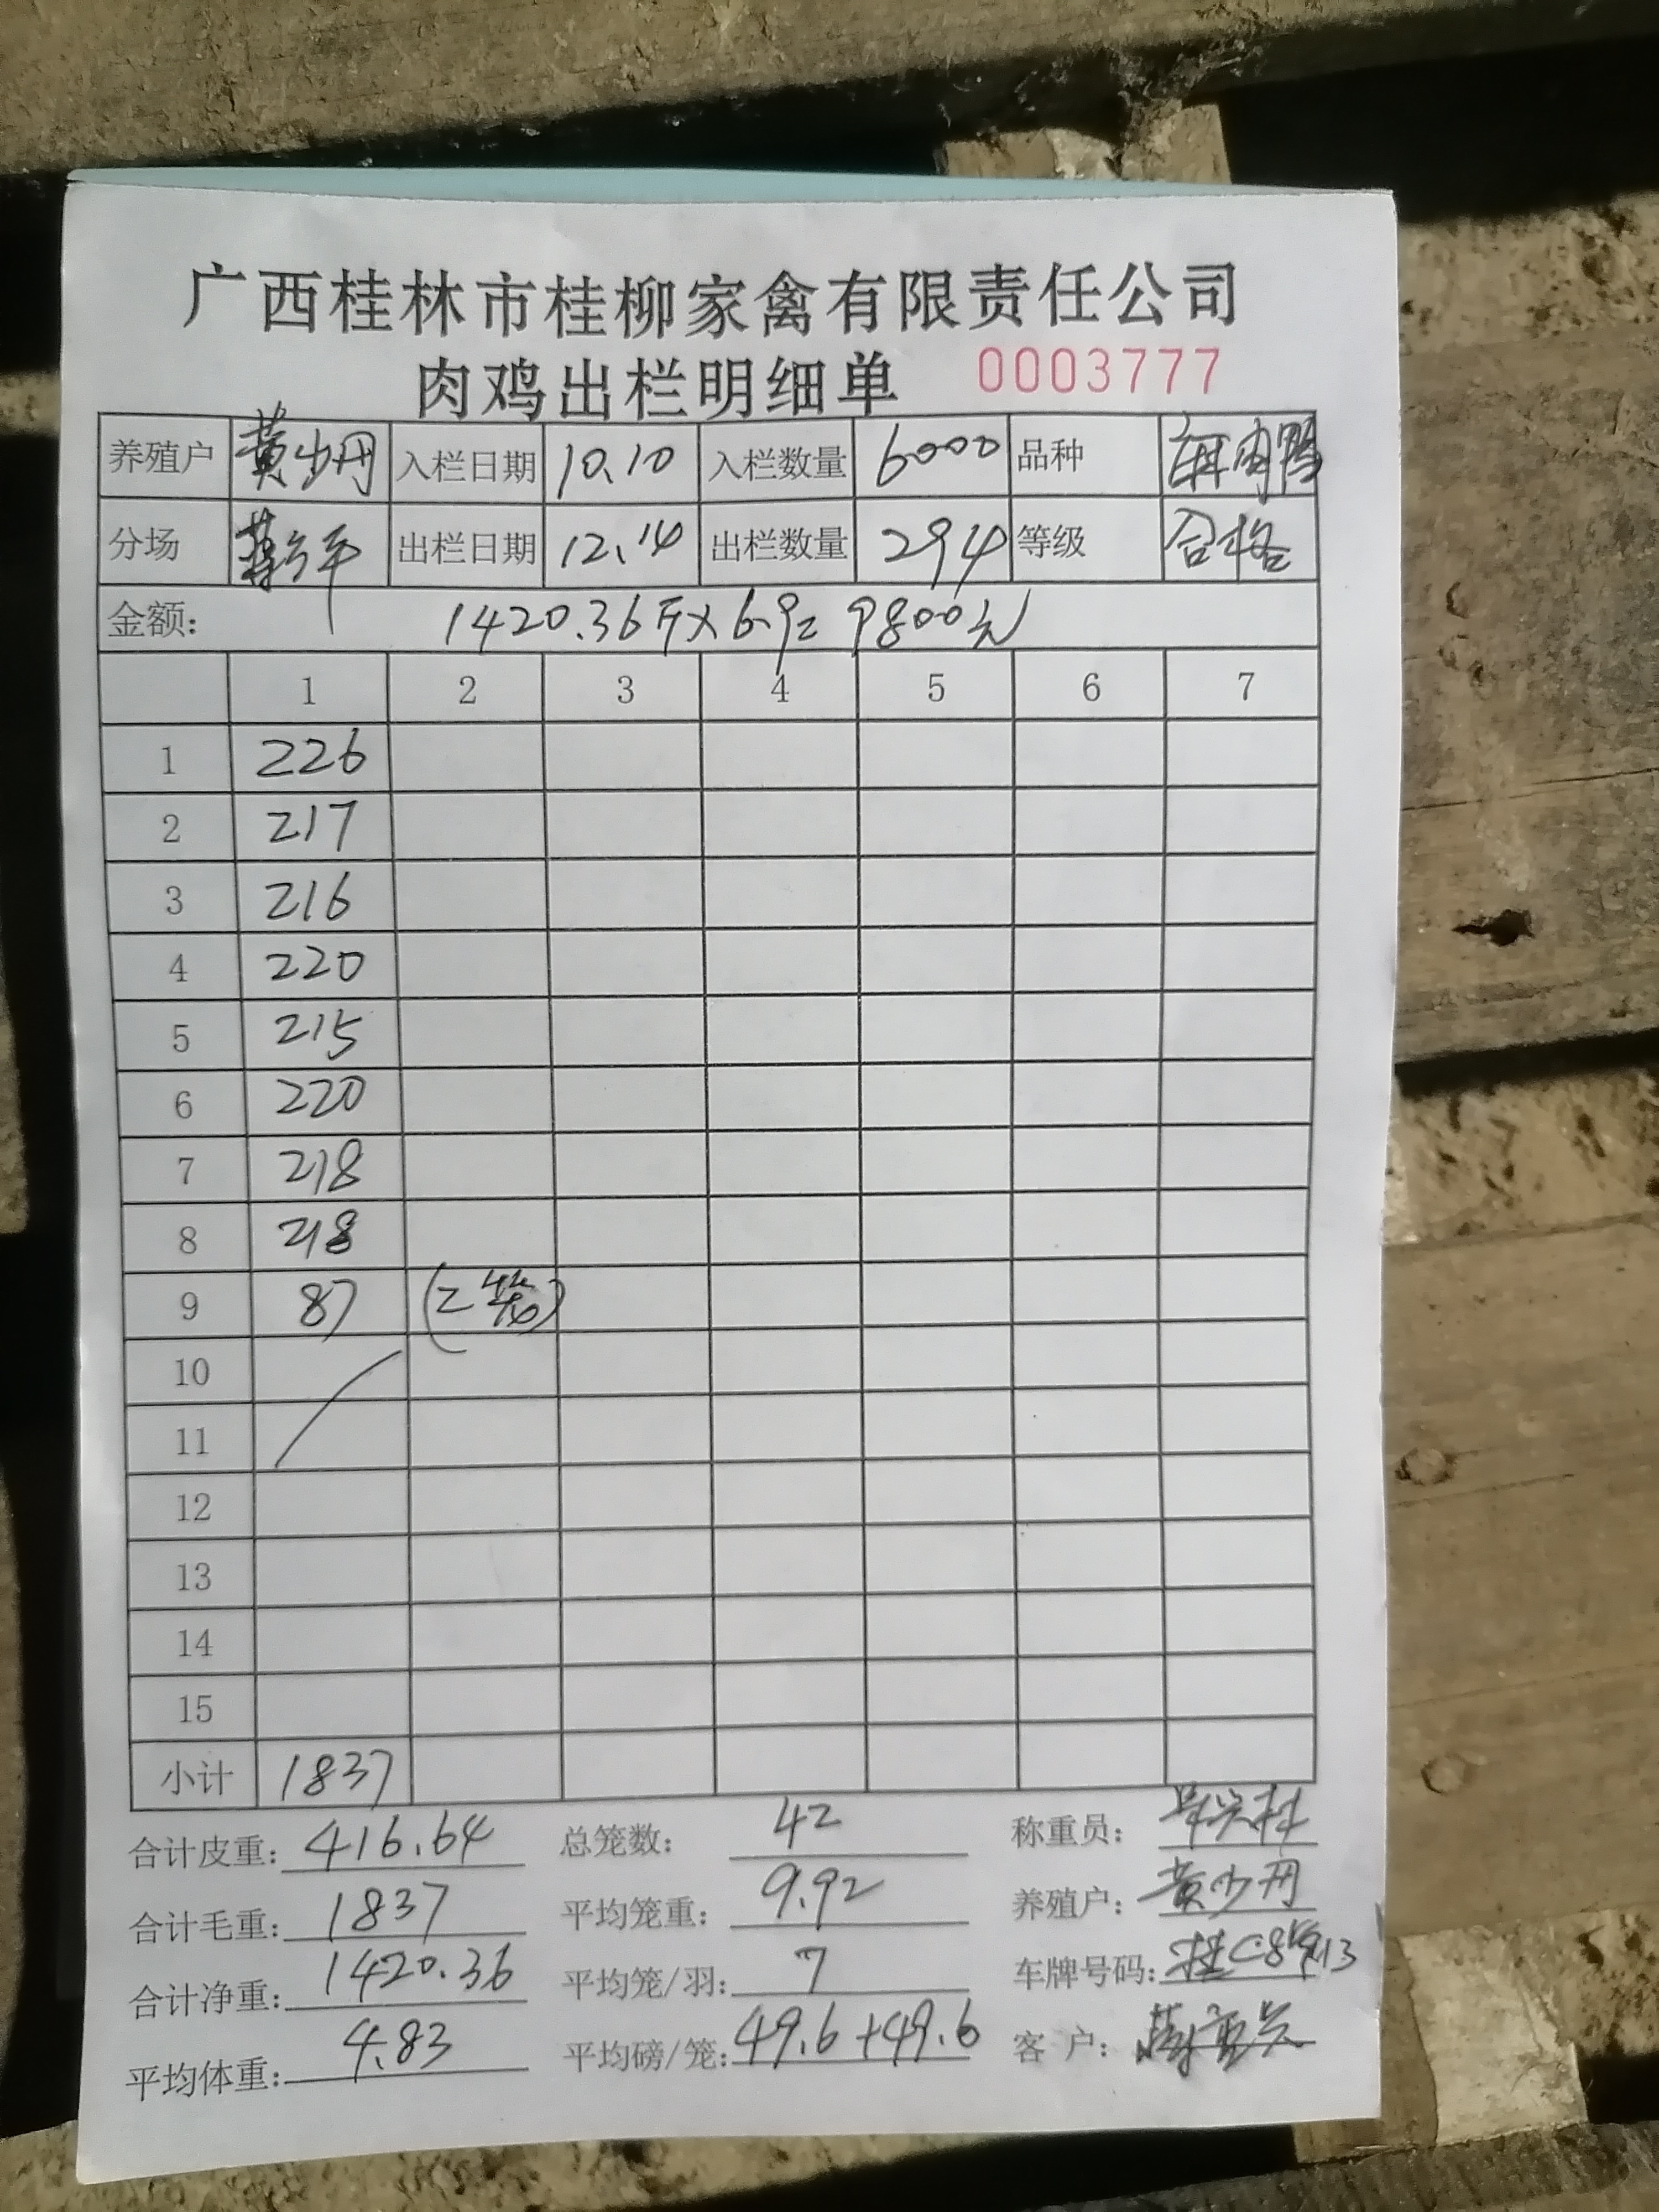 广西桂林市桂柳家禽有限责任公司
肉鸡出栏明细单 0003777
养殖户 黄少丹 入栏日期 10.10 入栏数量 6000 品种
分场 出栏日期 12.14 出栏数量 294 等级 合格
金额: 1420.36斤×6.9= 9800元
1 2 3 4 5 6 7
1 226
2 217
3 216
4 220
5 215
6 220
7 218
8 218
9 87 (2笼)
10
11
12
13
14
15
小计 1837
合计皮重: 416.64 总笼数: 42 称重员:
合计毛重: 1837 平均笼重: 9.92 养殖户: 黄少丹
合计净重: 1420.36 平均笼/羽: 7 车牌号码:
平均体重: 4.83 平均磅/笼: 49.6+49.6 客 户: